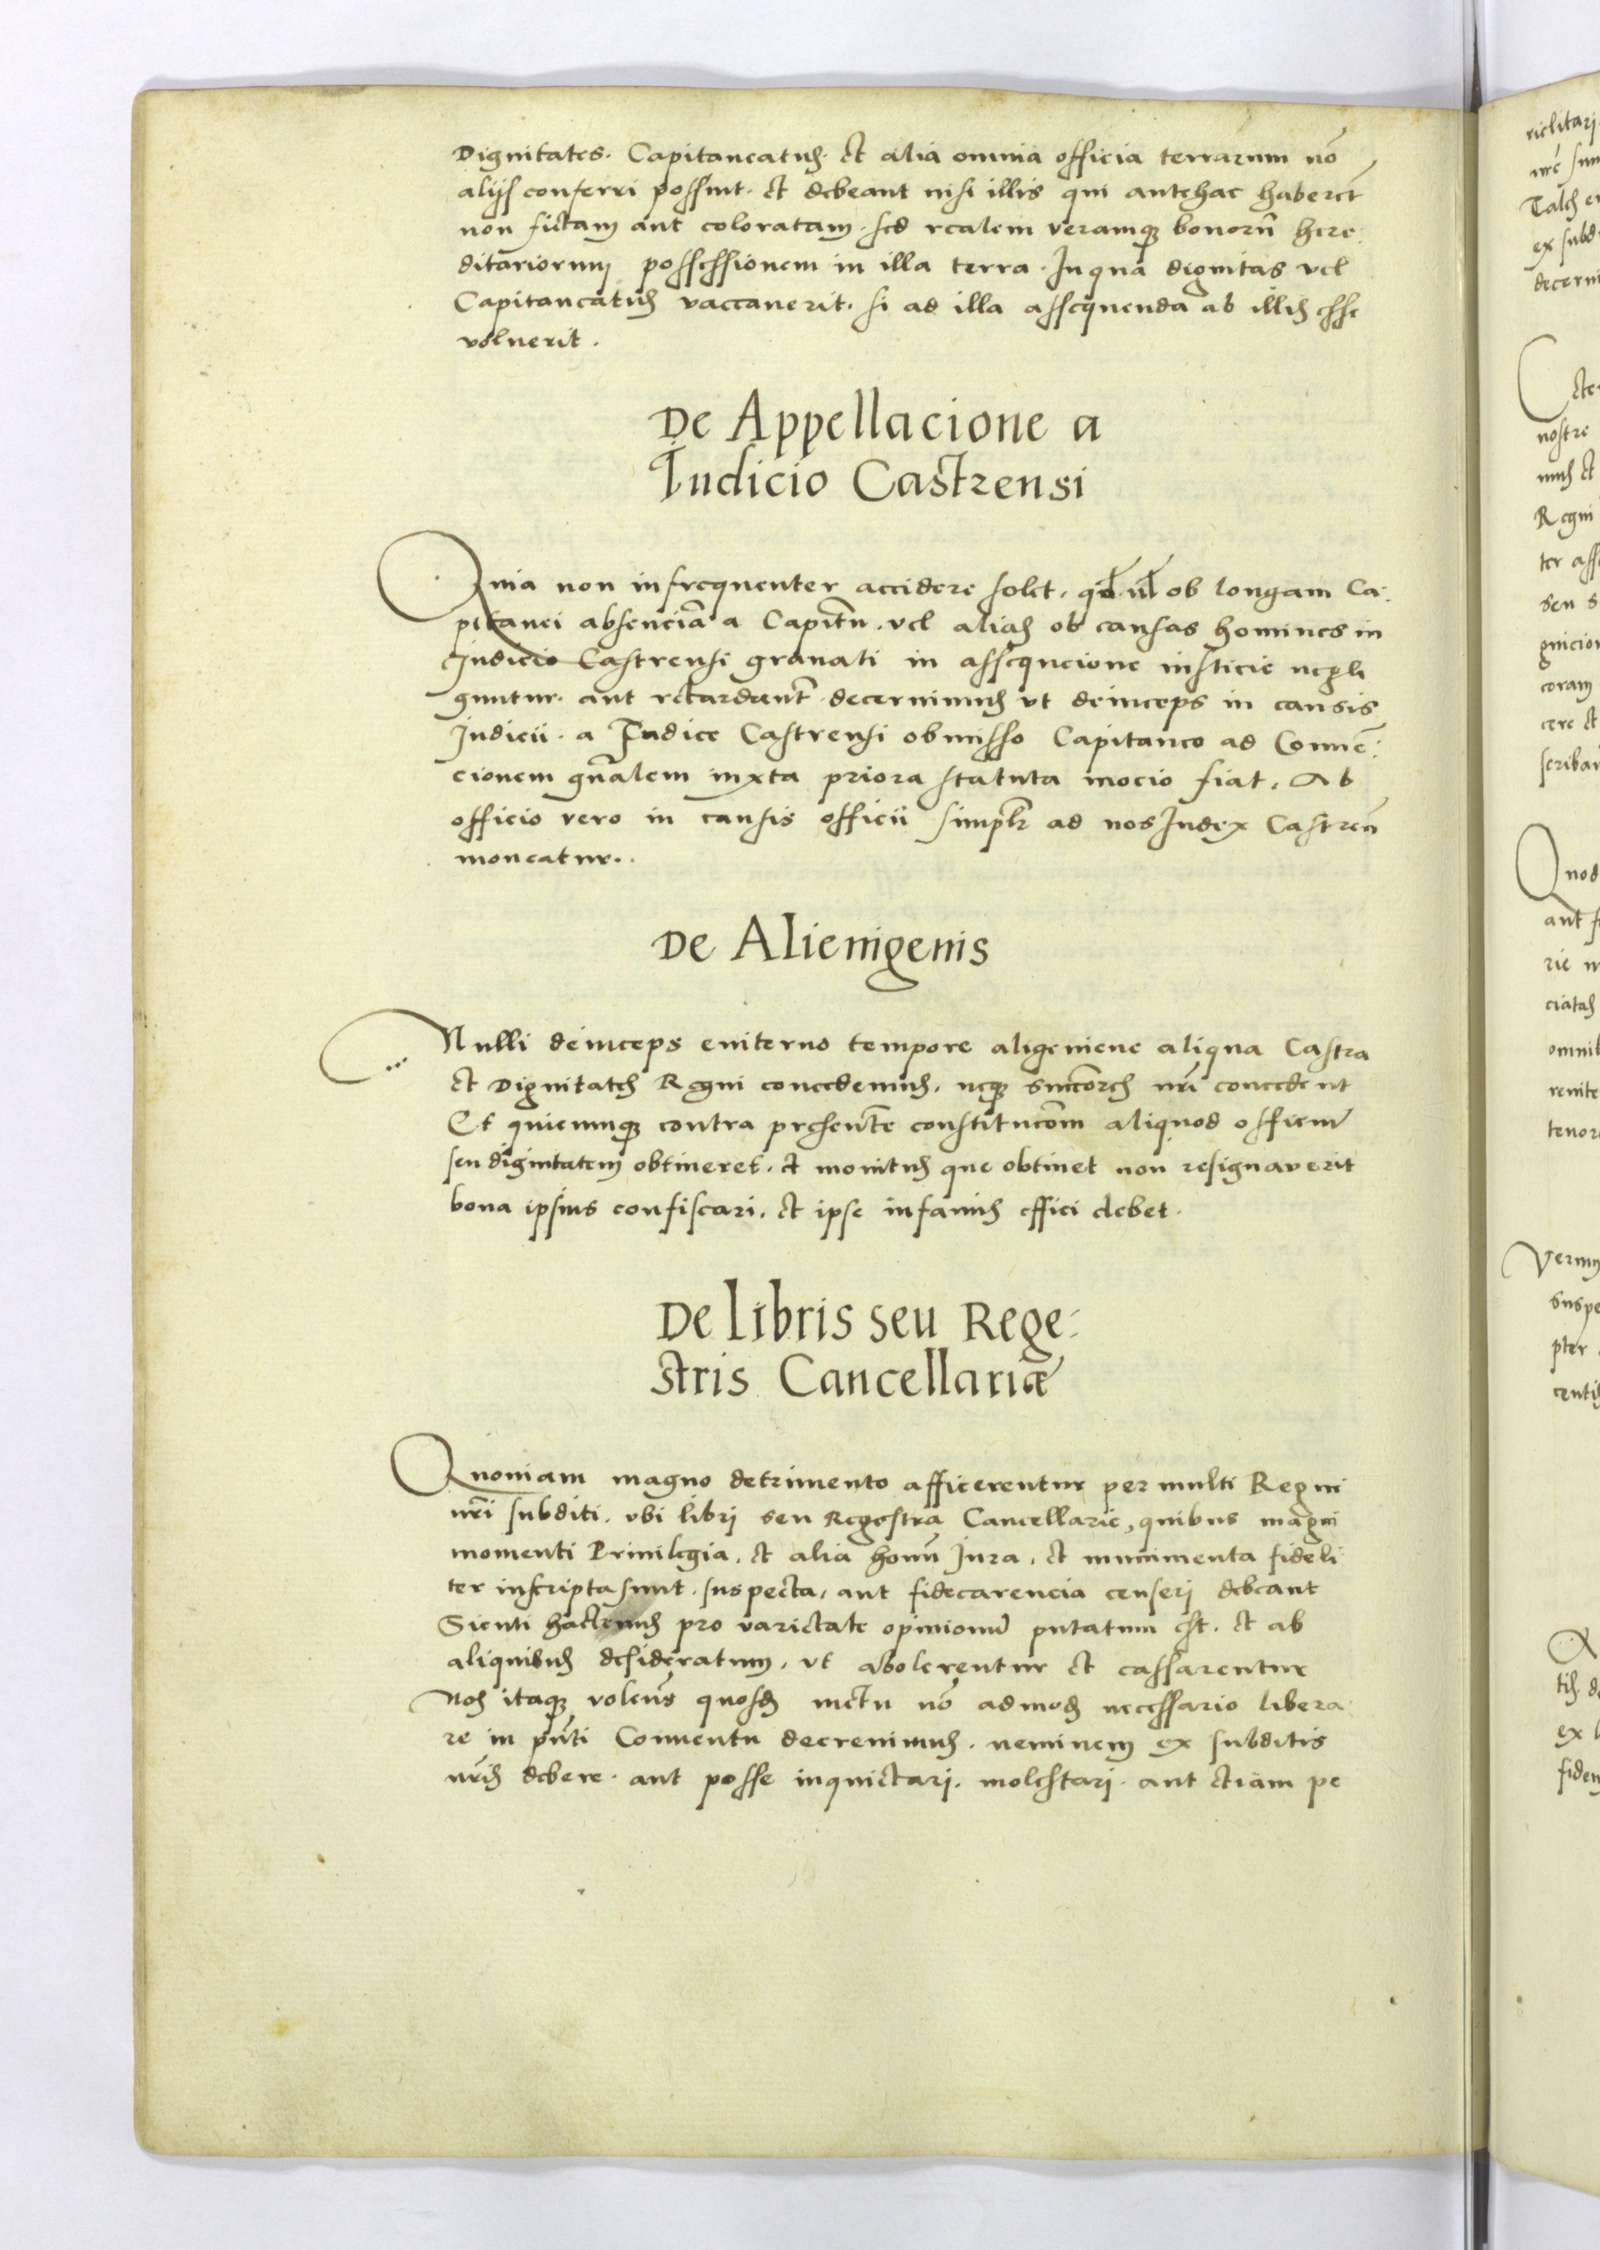 Dignitates. Capitaneatus. et alia omnia officia terrarum nō
alijs conferri possint. et debeant nisi illis qui antehac haberet
non fictam aut coloratam. sed realem veramq bonorū here
ditariorum possessionem in illa terra. In qua dignitas vel
Capitaneatus vaccauerit. si ad illa assequenda ab illis esse
voluerit.
De Appellacione a
Iudicio Castrensi
Quia non infrequenter accidere solet, qd ul ob longam Ca
pitanei absenciā a Capitū. vel alias ob causas homines in
Iudicio Castrensi grauati in assequcione iusticie negli
guntur. aut retardant decernimus vt deinceps in causis
Judicii. a Iudice Castrensi obmisso Capitaneo ad Conuē
cionem gñalem iuxta priora statuta mocio fiat. Ab
officio vero in causis officii simplr ad nos Iudex Castreñ
moueatur.
De Alienigenis
Nulli deinceps euiterno tempore aligeniene aliqua Castra
et Dignitates Regni concedemus. neq succōres nri concedent
Et quicumq contra presentē constitucōm aliquod officiū
seu dignitatem obtineret. et monitus que obtinet non resignauerit
bona ipsius confiscari. et ipse infamis effici debet.
De libris seu Rege
stris Cancellariæ
Quoniam magno detrimento afficerentur per multi Regni
nri subditi. vbi libri seu Regestra Cancellarie, quibus magni
momenti Priuilegia. et alia homū Iura. et munimenta fideli
ter inscripta sunt. suspecta, aut fidecarencia censeri debeant
Sicuti hactenus pro varietate opinionū putatum est. et ab
aliquibus desideratum. vt abolerentur et cassarentur
Nos itaq volens quosd metu nō admod necessario libera
re in pñti Conuentu decreuimus. neminem ex subditis
nris debere. aut posse inquietari. molestari. aut etiam pe